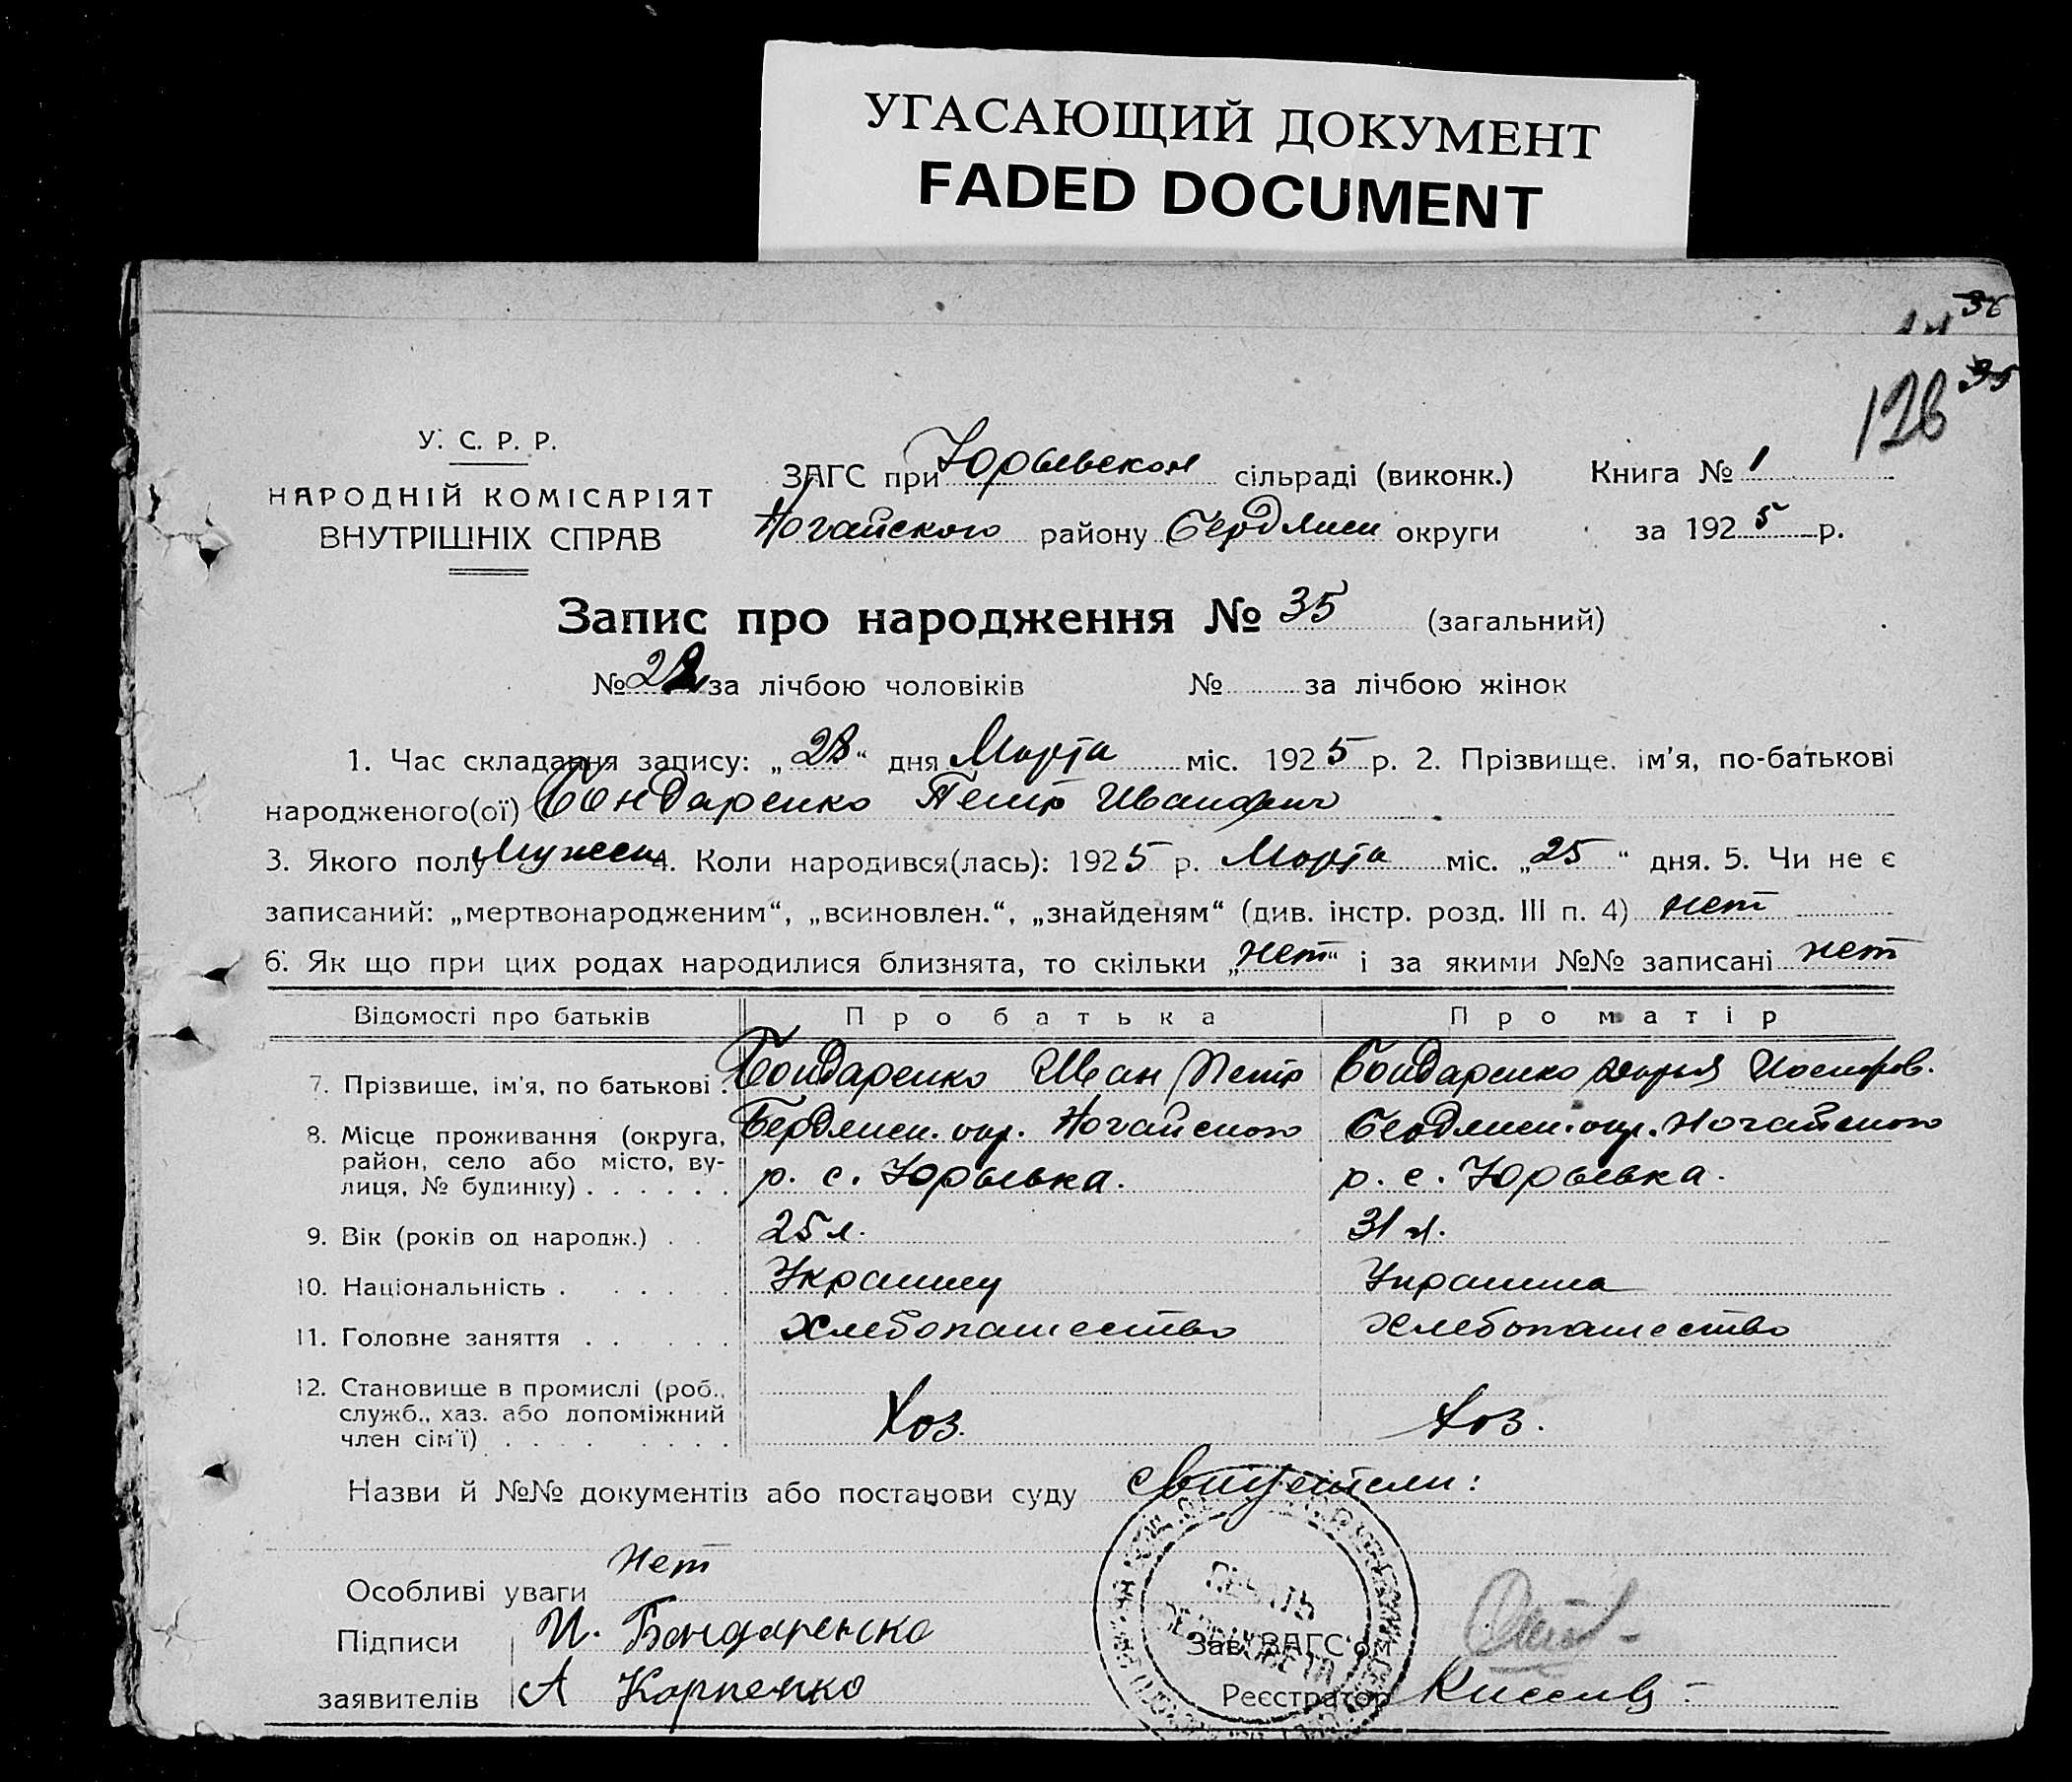 УГАСАЮЩИЙ ДОКУМЕНТ
FADED DOCUMENT
36
35
126
У. С. Р. Р.
НАРОДНІЙ КОМІСАРІЯТ
ВНУТРІШНІХ СПРАВ
ЗАГС при Юрьевском сільраді (виконк.) Книга № 1
Ногайского району Бердянск округи за 1925 р.
Запис про народження № 35 (загальний)
№ 22 за лічбою чоловіків № за лічбою жінок
1. Час складання запису: „28“ дня Марта міс. 1925 р. 2. Прізвище, ім'я, по-батькові
народженого(ої) Бондаренко Петр Иванович
3. Якого полу Мужеск 4. Коли народився(лась): 1925 р. Марта міс. „25“ дня. 5. Чи не є
записаний: „мертвонародженим“, „всиновлен.“, „знайденям“ (див. інстр. розд. III п. 4) нет
6. Як що при цих родах народилися близнята, то скільки „нет“ і за якими №№ записані нет
Відомості про батьків Про батька Про матір
7. Прізвище, ім'я, по батькові Бондаренко Иван Петр Бондаренко Дарья
8. Місце проживання (округа, Бердянск. окр. Ногайского Бердянск. окр. Ногайского
район, село або місто, ву-
лиця, № будинку) р. с. Юрьевка. р. с. Юрьевка.
9. Вік (років од народж.) 25 л. 31 л.
10. Національність Украинец Украинка
11. Головне заняття Хлебопашество Хлебопашество
12. Становище в промислі (роб.,
служб., хаз. або допоміжний Хоз. Хоз.
член сім'ї)
Назви й №№ документів або постанови суду Свидетели:
Особливі уваги Нет
Підписи И. Бондаренко Зав. ЗАГС'ом
заявителів А Карпенко Реєстратор
ПЕЧАТЬ